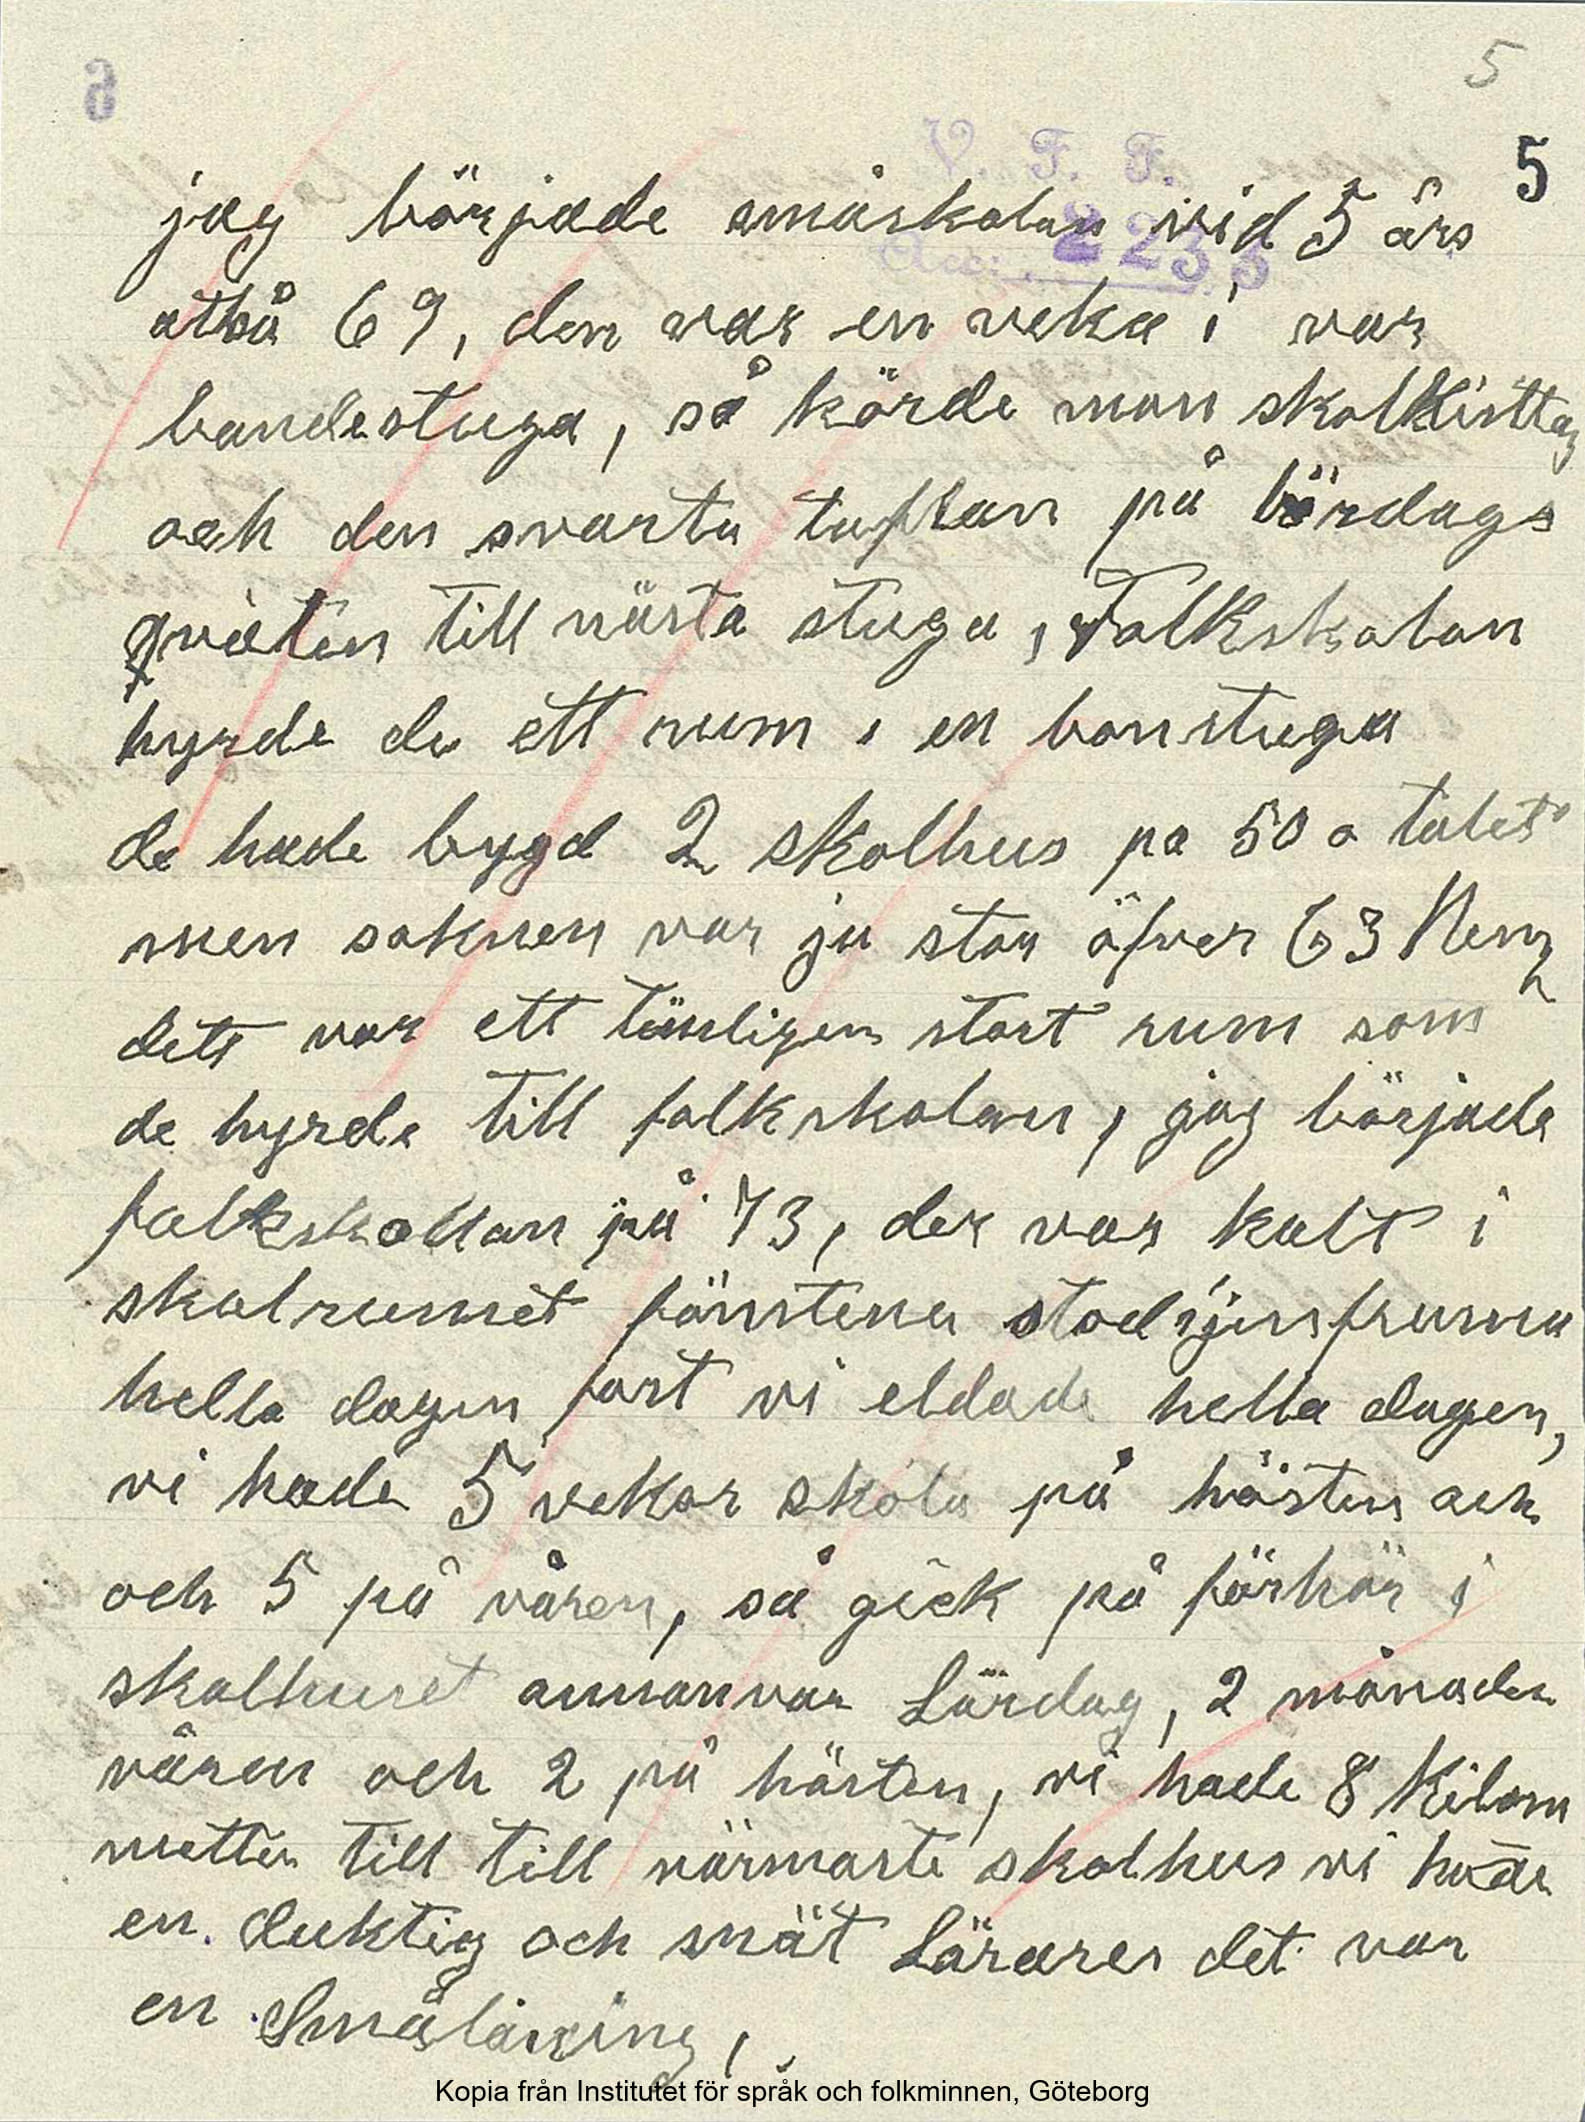 5
5
V. F. F.
jag började småskolan vid 5 års
Acc: 2233
69, den var en veka i var
bondestuga, så körde man skolkistta
och den svarta taflan på lördags
qväten till nästa stuga, Folkskolan
hyrde de ett rum i en bonstuga
de hade bygd 2 skolhus pa 50 a talet
men soknen var ju stor öfver 63 Hem
dett var ett tämligen stort rum som
de hyrde till folkskolan, jag började
folkskollan på 73, der var kalt i
skolrumet fönstena stod ijinfruma
hella dagen fort vi eldade hella dagen,
vi hade 5 vekor skola på hösten och
och 5 på våren, så gick på förhör i
skolhuset annanvar Lördag, 2 månader
våren och 2 på hösten, vi hade 8 Kilom
metter till till närmaste skolhus vi hade
en duktig och snät Lärarer det var
en Smålänning,
Kopia från Institutet för språk och folkminnen, Göteborg